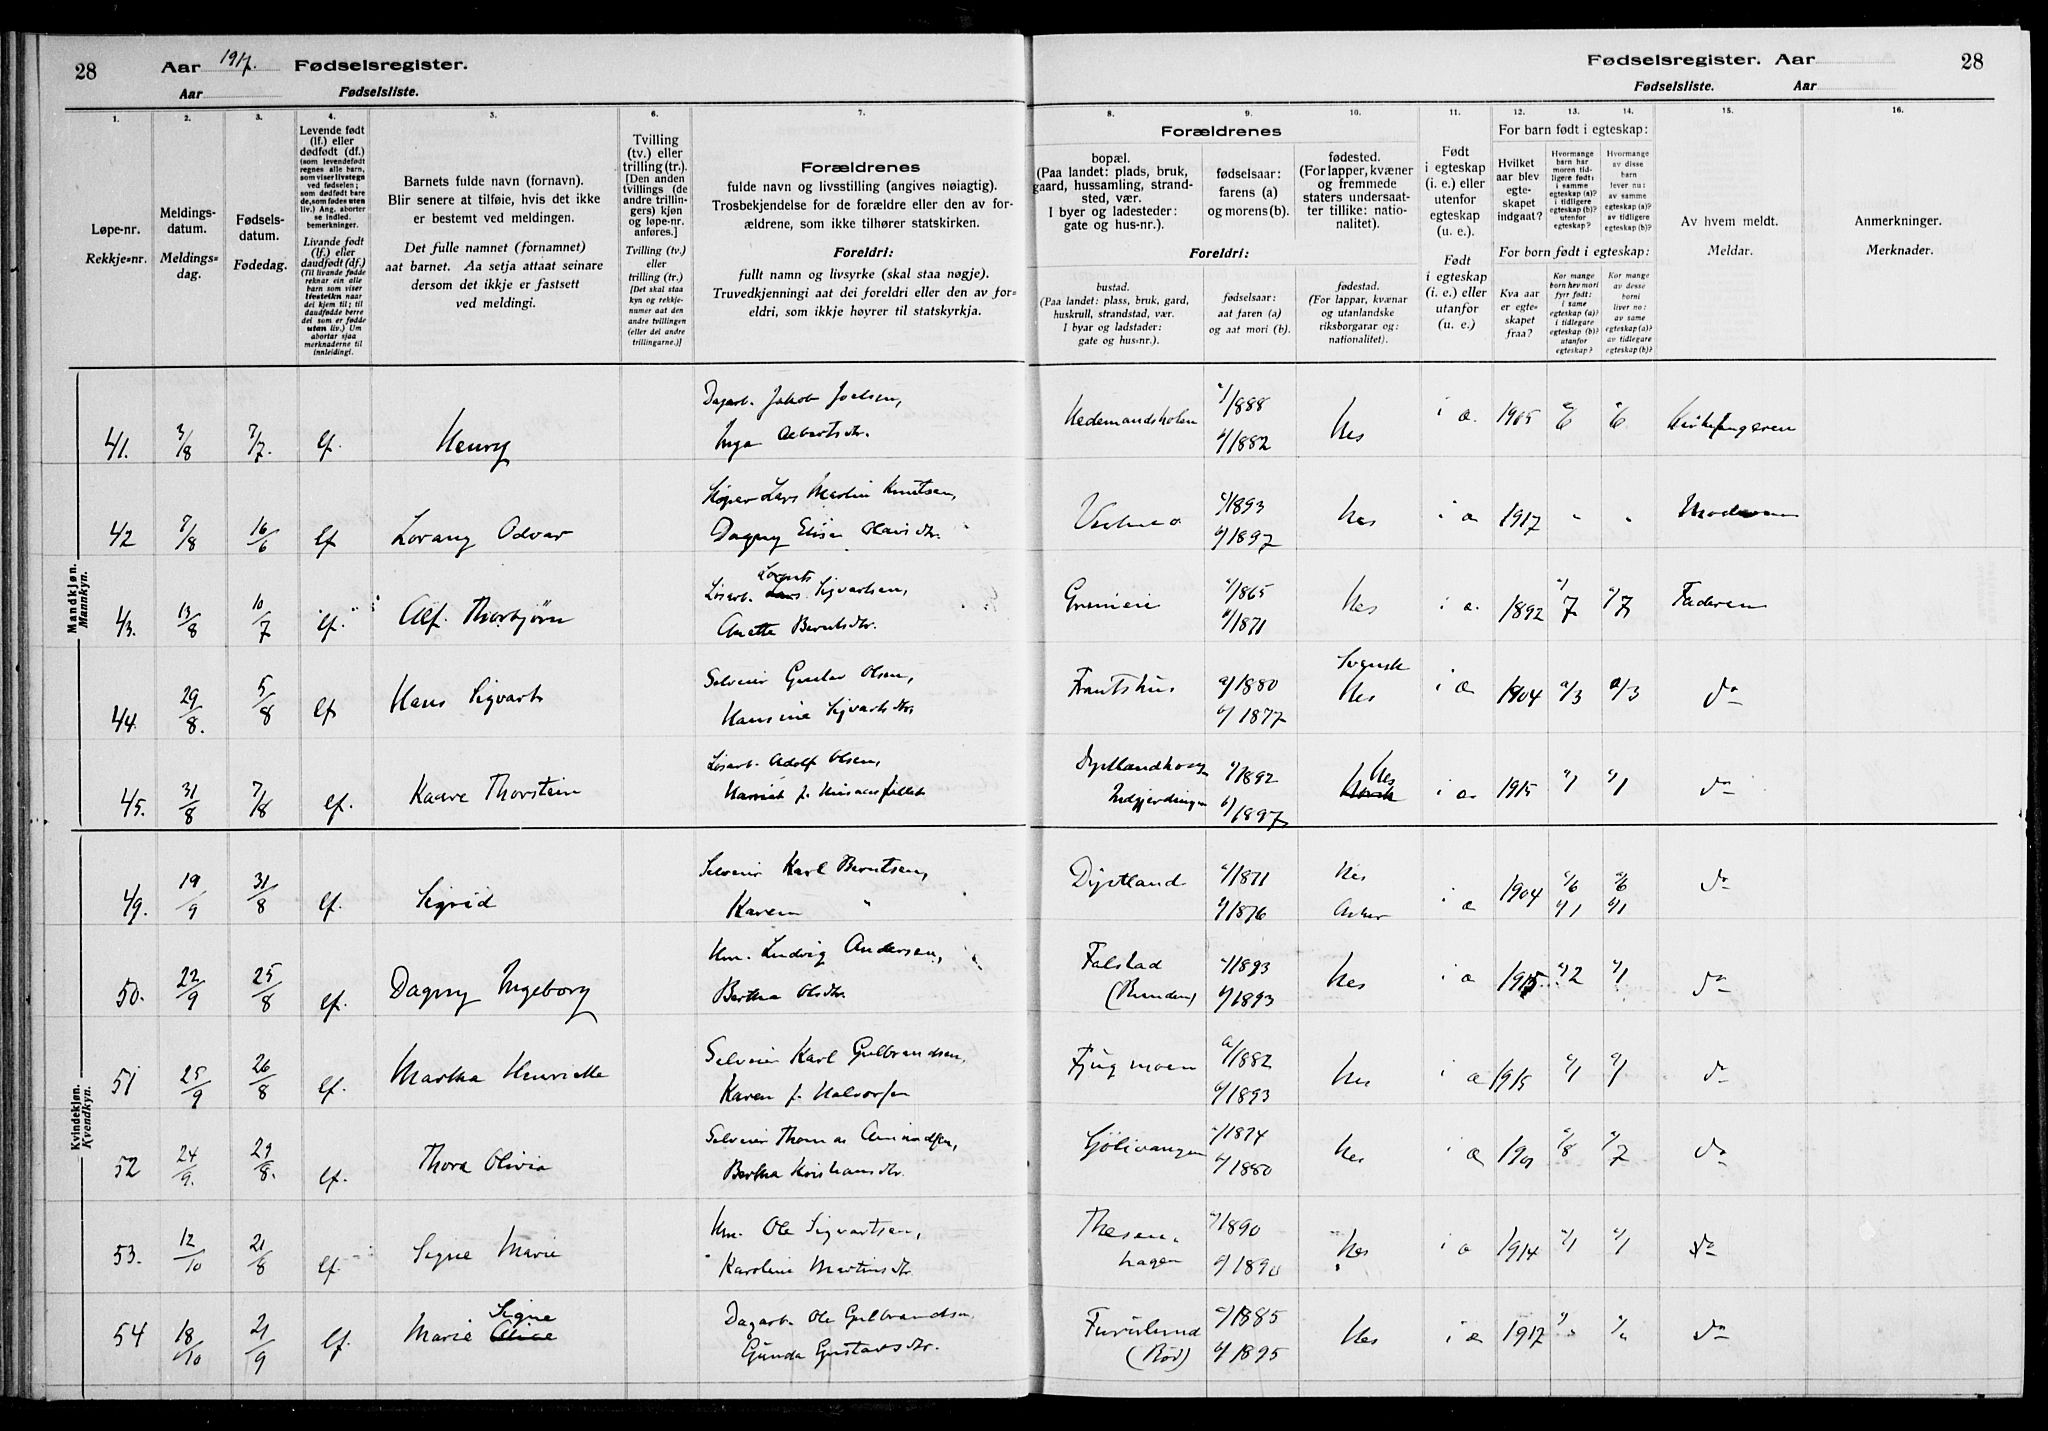 28
Aar 1917. Fødselsregister.
Aar Fødselsliste.
Fødselsregister. Aar
28
Fødselsliste. Aar
1.
2.
3.
4.
5.
6.
7.
8.
9.
10.
11.
12.
13.
14.
15.
16.
Løpe-nr.
Rekkje-nr.
Meldings-
datum.
Meldings-
dag.
Fødsels-
datum.
Fødedag.
Levende født
(lf.) eller
dødfødt (df.)
(som levendefødt
regnes alle barn,
som viser livstegn
ved fødselen;
som dødfødt bare
de, som fødes uten
liv.) Ang. aborter
se indled.
bemerkninger.
Livande født
(lf.) eller
daudfødt (df.)
(Til livande fødde
reknar ein alle
barn som viser
livsteikn naar
dei kjem til; til
daudfødde berre
dei som er fødde
utan liv.) Um
abortar sjaa
merknaderne til
innleidingi.
Barnets fulde navn (fornavn).
Blir senere at tilføie, hvis det ikke
er bestemt ved meldingen.
Det fulle namnet (fornamnet)
aat barnet. Aa setja attaat seinare
dersom det ikkje er fastsett
ved meldingi.
Tvilling
(tv.) eller
trilling (tr.)
[Den anden
tvillings (de
andre trillin-
gers) kjøn
og løpe-nr.
anføres.]
Tvilling (tv.)
eller
trilling (tr.)
[Det skal staa
kyn og rekkje-
numer aat den
andre tvillingen
(eller dei andre
trillingarne.)]
Forældrenes
fulde navn og livsstilling (angives nøiagtig).
Trosbekjendelse for de forældre eller den av for-
ældrene, som ikke tilhører statskirken.
Foreldri:
fullt namn og livsyrke (skal staa nøgje).
Truvedkjenningi aat dei foreldri eller den av for-
eldri, som ikkje høyrer til statskyrkja.
Forældrenes
bopæl.
(Paa landet: plads, bruk,
gaard, hussamling, strand-
sted, vær.
I byer og ladesteder:
gate og hus-nr.).
fødselsaar:
farens (a)
og morens (b).
fødested.
(For lapper, kvæner
og fremmede
staters undersaat-
ter tillike: natio-
nalitet).
Foreldri:
bustad.
(Paa landet: plass, bruk, gard,
huskrull, strandstad, vær.
I byar og ladstader:
gate og hus-nr.).
fødselsaar:
aat faren (a)
og aat mori (b).
fødestad.
(For lappar, kvænar
og utanlandske
riksborgarar og:
nationalitet).
Født
i egteskap
(i. e.) eller
utenfor
egteskap
(u. e.).
Født
i egteskap
(i. e.) eller
utanfor
(u. e.).
For barn født i egteskap:
Hvilket
aar blev
egte-
skapet
indgaat?
Hvormange
barn har
moren tid-
ligere født:
i samme
egteskap (a)?
i tidligere
egteskap (b)?
utenfor
egteskap?
Hvormange
av disse
barn
lever nu:
av samme
egteskap (a)?
av tidligere
egteskap (b)?
For born født i egteskap:
Kva aar
er egte-
skapet
fraa?
Kor mange
born hev mori
fyrr født:
i same
egteskap (a)?
i tidlegare
egteskap (b)?
utanfor
egteskap?
Kor mange
av desse
borni
liver no:
av same
egteskap (a)?
av tidlegare
egteskap (b)?
Av hvem meldt.
Meldar.
Anmerkninger.
Merknader.
Mandkjøn.
Mannkyn.
41. 3/8 7/7. lf. Henry Dagarb. Jakob Joelsen, Hedemandsholen a/1888 Hes i æ. 1905 a/6 a/6 Kirkesangeren
Inga Albertsdtr. b/1882
42 7/8 16/6 lf Lorang Odvar Lars Martin Knutsen, a/1893 Hes i æ 1917 " " Moderen
Dagny Elise Olavsdtr. b/1897
43. 13/8 10/7 lf. Alf. Thorbjørn Løsarb. Lars Lorents Sigvartsen, a/1865 Hes i æ. 1892 a/7 a/7 Faderen
Anette Berntsdtr. b/1871
44. 29/8. 5/8 lf Hans Sigvart Selveier Gustav Olsen, Frantshus a/1880 Svensk Hes i æ 1904 a/3 a/3 do
Hansine Sigvartsdtr b/1877
45. 31/8 7/8 lf. Kaare Thorstein Løsarb. Adolf Olsen, a/1892 Hes Norsk i æ 1915 a/1 a/1 do
Indgjerdingen b/1897
Kvindekjøn.
Kvendkyn.
49. 19/9 31/8 lf. Sigrid Selveier Karl Berntsen, Dystland a/1871 Hes i æ 1904 a/6 a/6 do
Karen " b/1876 Asker b/1 b/1
50. 22/9 25/8 lf. Dagny Ingeborg Hm. Ludvig Andersen, Falstad a/1893 Hes i æ 1915 a/2 a/1 do
Bertha Olsdtr. b/1893
51 25/9 26/8 lf. Martha Henriette Selveier Karl Gulbrandsen, Fjugmoen a/1882 Hes i æ 1915 a/1 a/1 do
Karen f. Halvorsen b/1893
52 24/9. 29/8. lf. Thora Olivia Selveier Thomas Amundsen, a/1874 Hes i æ a/8 a/7 do
Bertha Kristiansdtr. b/1880
53. 12/10 21/8 lf. Signe Marie Hm. Ole Sigvartsen, Thesen- a/1890 Hes i æ 1914 a/1 a/1 do
Karoline Martinsdtr. hagen b/1890
54 18/10 21/9 lf. Marie Signe Dagarb. Ole Gulbrandsen Furulund a/1885 Hes i æ 1917 do
Gunda Gustavsdtr. (Rød) b/1895